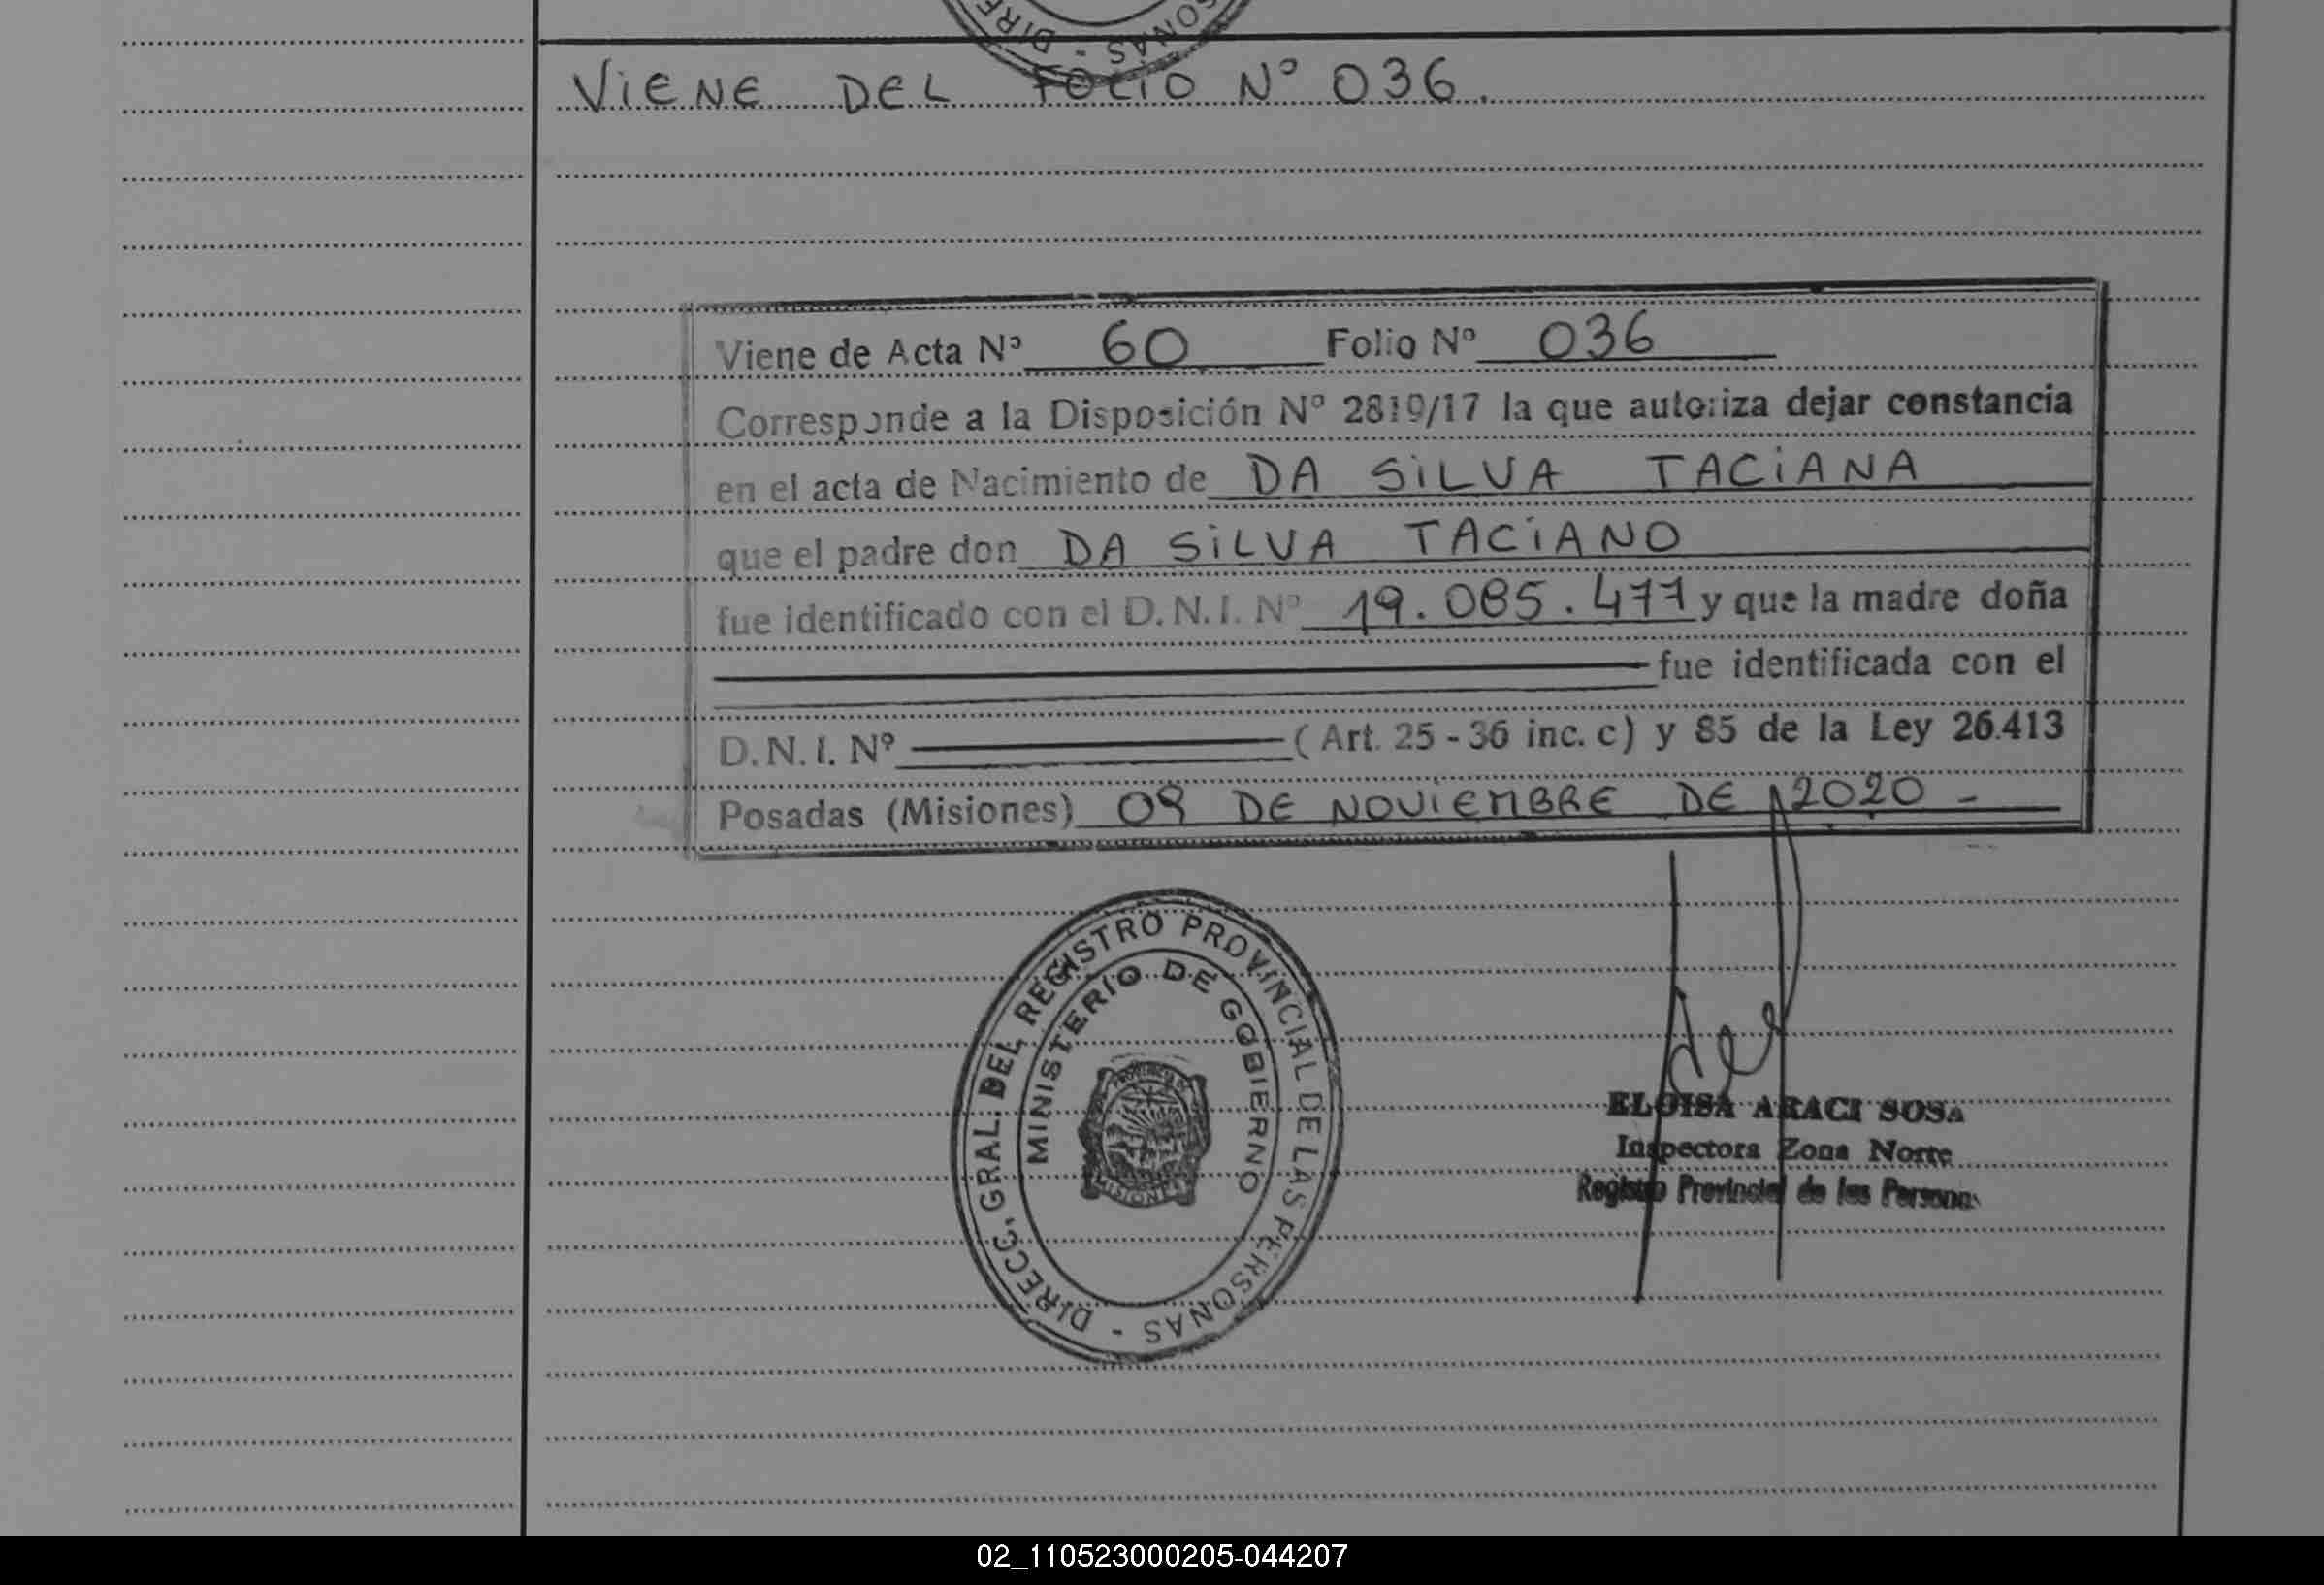 VIENE DEL FOLIO Nº 036.
Viene de Acta Nº 60 Folio Nº 036
Corresponde a la Disposición Nº 2819/17 la que autoriza dejar constancia
en el acta de Nacimiento de DA SILVA TACIANA
que el padre don DA SILVA TACIANO
fue identificado con el D.N.I. Nº 19.085.477 y que la madre doña
fue identificada con el
D.N.I. Nº (Art. 25 - 36 inc. c) y 85 de la Ley 26.413
Posadas (Misiones) 09 DE NOVIEMBRE DE 2020 -
DIRECC. GRAL. DEL REGISTRO PROVINCIAL DE LAS PERSONAS -
MINISTERIO DE GOBIERNO
MISIONES
ELOISA ARACI SOSA
Inspectora Zona Norte
Registro Provincial de las Personas
02_110523000205-044207